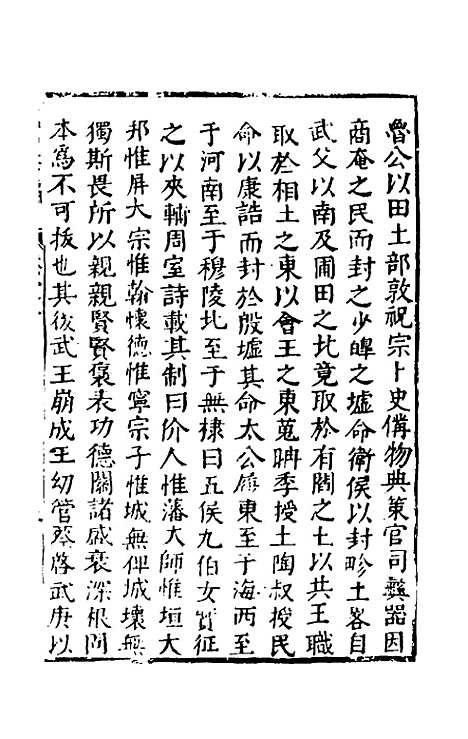 魯公以田土部敦祝宗卜史備物典策官司彝器因
商奄之民而封之少皥之墟命衛侯以封畛土畧自
武父以南及圃田之北竟取於有閻之土以共王職
取於相土之東以會王之東蒐聃季授土陶叔授民
命以康誥而封於殷墟其命太公履東至于海西至
于河南至于穆陵北至于無棣曰五侯九伯女實征
之以夾輔周室詩載其制曰价人惟藩大師惟垣大
邦惟屏大宗惟翰懷德惟寧宗子惟城無俾城壞無
獨斯畏所以親親賢賢褒表功德關諸盛衰深根固
本爲不可拔也其後武王崩成王幼管蔡啓武庚以